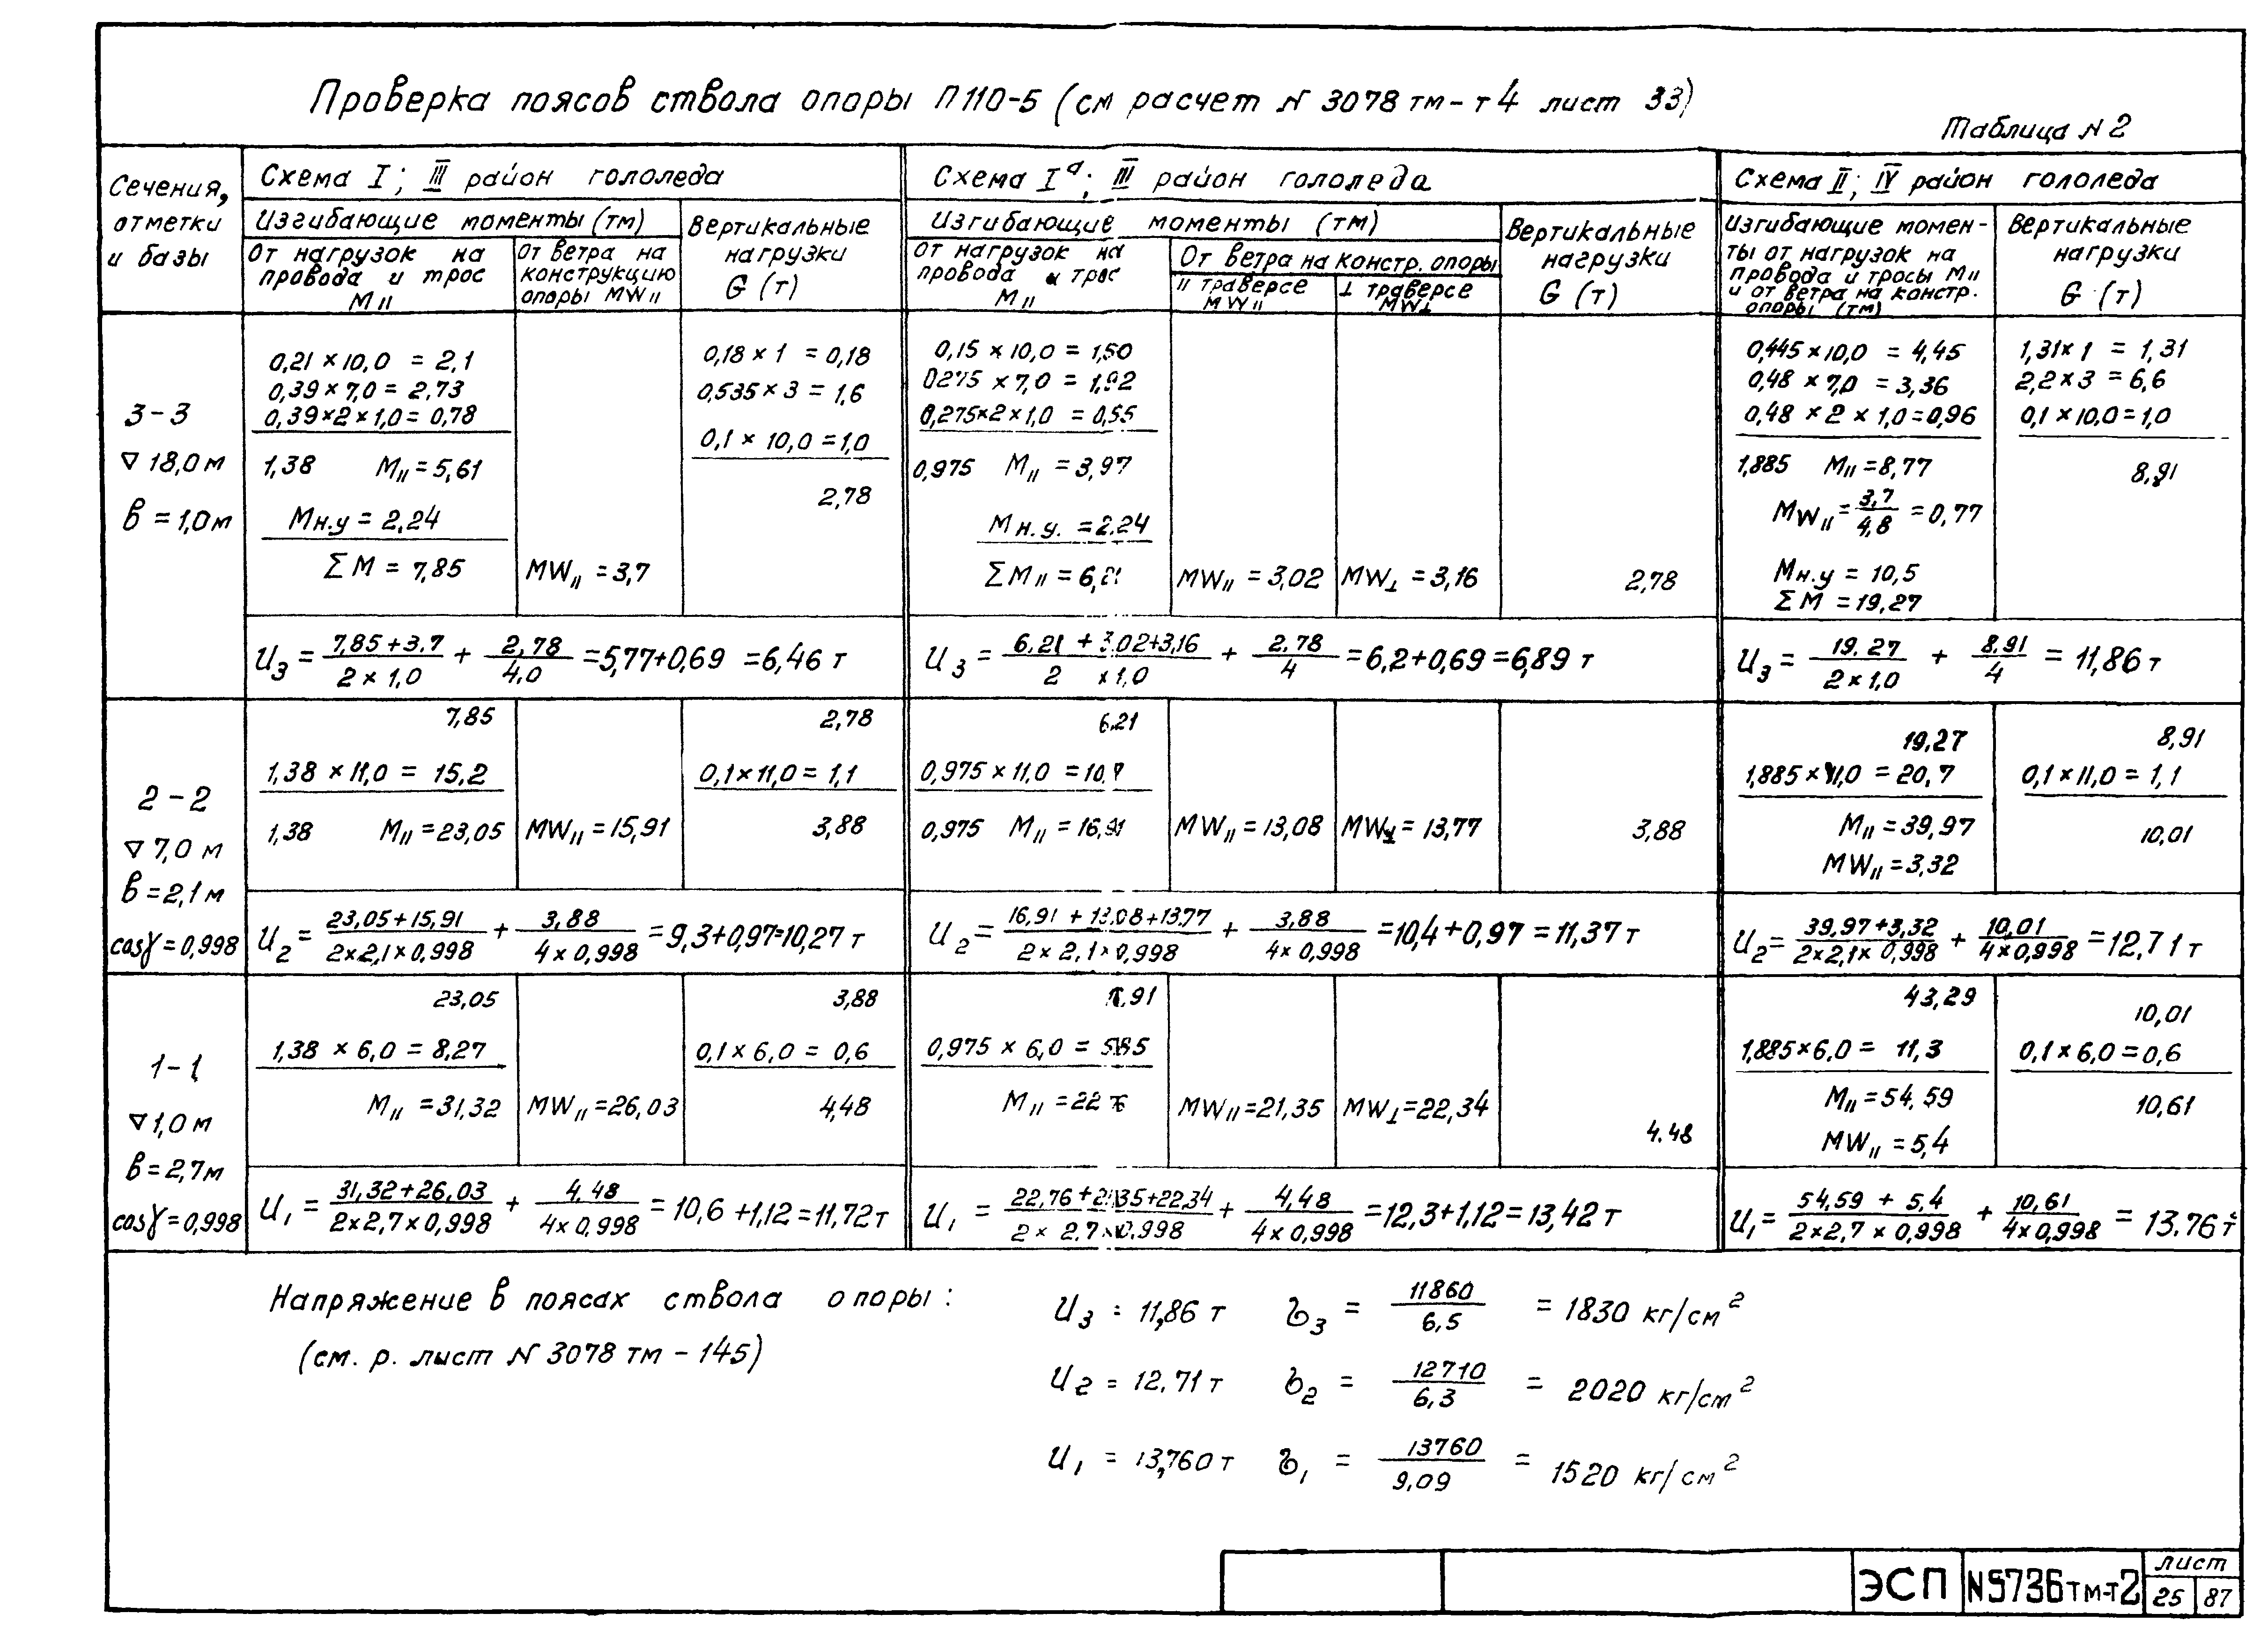 Проверка поясов ствола опоры П110-5 (см расчет N 3078 тм-т4 лист 33)
Таблица N 2
Сечения, отметки и базы
Схема I; III район гололеда
Изгибающие моменты (тм)
От нагрузок на провода и трос M||
От ветра на конструкцию опоры MW||
Вертикальные нагрузки G (т)
Схема Iа; III район гололеда
Изгибающие моменты (тм)
От нагрузок на провода и трос M||
От ветра на констр. опоры
|| траверсе MW||
⊥ траверсе MW⊥
Вертикальные нагрузки G (т)
Схема II; IV район гололеда
Изгибающие моменты от нагрузок на провода и тросы M|| и от ветра на констр. опоры (тм)
Вертикальные нагрузки G (т)
3-3
▽ 18,0 м
в = 1,0 м
0,21 × 10,0 = 2,1
0,39 × 7,0 = 2,73
0,39×2×1,0 = 0,78
1,38 M|| = 5,61
Mн.у = 2,24
ΣM = 7,85
MW|| = 3,7
0,18 × 1 = 0,18
0,535 × 3 = 1,6
0,1 × 10,0 = 1,0
2,78
0,15 × 10,0 = 1,50
0275 × 7,0 = 1,92
0,275×2×1,0 = 0,55
0,975 M|| = 3,97
Mн.у. = 2,24
ΣM|| = 6,21
MW|| = 3,02
MW⊥ = 3,16
2,78
0,445×10,0 = 4,45
0,48 × 7,0 = 3,36
0,48 × 2 × 1,0 = 0,96
1,885 M|| = 8,77
MW|| = 3,7/4,8 = 0,77
Mн.у = 10,5
ΣM = 19,27
1,31×1 = 1,31
2,2×3 = 6,6
0,1×10,0 = 1,0
8,91
U3 = (7,85+3,7)/(2×1,0) + 2,78/4,0 = 5,77+0,69 = 6,46 т
U3 = (6,21+3,02+3,16)/(2×1,0) + 2,78/4 = 6,2+0,69 = 6,89 т
U3 = 19,27/(2×1,0) + 8,91/4 = 11,86 т
2-2
▽ 7,0 м
в = 2,1 м
cosγ = 0,998
7,85
1,38 × 11,0 = 15,2
1,38 M|| = 23,05
MW|| = 15,91
2,78
0,1×11,0 = 1,1
3,88
6,21
0,975×11,0 = 10,7
0,975 M|| = 16,91
MW|| = 13,08
MW⊥ = 13,77
3,88
19,27
1,885×11,0 = 20,7
M|| = 39,97
MW|| = 3,32
8,91
0,1×11,0 = 1,1
10,01
U2 = (23,05+15,91)/(2×2,1×0,998) + 3,88/(4×0,998) = 9,3+0,97=10,27 т
U2 = (16,91+13,08+13,77)/(2×2,1×0,998) + 3,88/(4×0,998) = 10,4+0,97 = 11,37 т
U2 = (39,97+3,32)/(2×2,1×0,998) + 10,01/(4×0,998) = 12,71 т
1-1
▽ 1,0 м
в = 2,7 м
cosγ = 0,998
23,05
1,38 × 6,0 = 8,27
M|| = 31,32
MW|| = 26,03
3,88
0,1×6,0 = 0,6
4,48
0,975 × 6,0 = 5,85
MW|| = 21,35
MW⊥ = 22,34
4.48
43,29
1,885×6,0 = 11,3
M|| = 54,59
MW|| = 5,4
10,01
0,1×6,0 = 0,6
10,61
U1 = (31,32+26,03)/(2×2,7×0,998) + 4,48/(4×0,998) = 10,6+1,12 = 11,72 т
U1 = (22,76+21,35+22,34)/(2×2,7×0,998) + 4,48/(4×0,998) = 12,3+1,12 = 13,42 т
U1 = (54,59 + 5,4)/(2×2,7×0,998) + 10,61/(4×0,998) = 13.76 т
Напряжение в поясах ствола опоры:
(см. р. лист N 3078 тм - 145)
U3 = 11,86 т σ3 = 11860/6,5 = 1830 кг/см²
U2 = 12,71 т σ2 = 12710/6,3 = 2020 кг/см²
U1 = 13,760 т σ1 = 13760/9,09 = 1520 кг/см²
ЭСП N5736тм-т2 лист 25 87